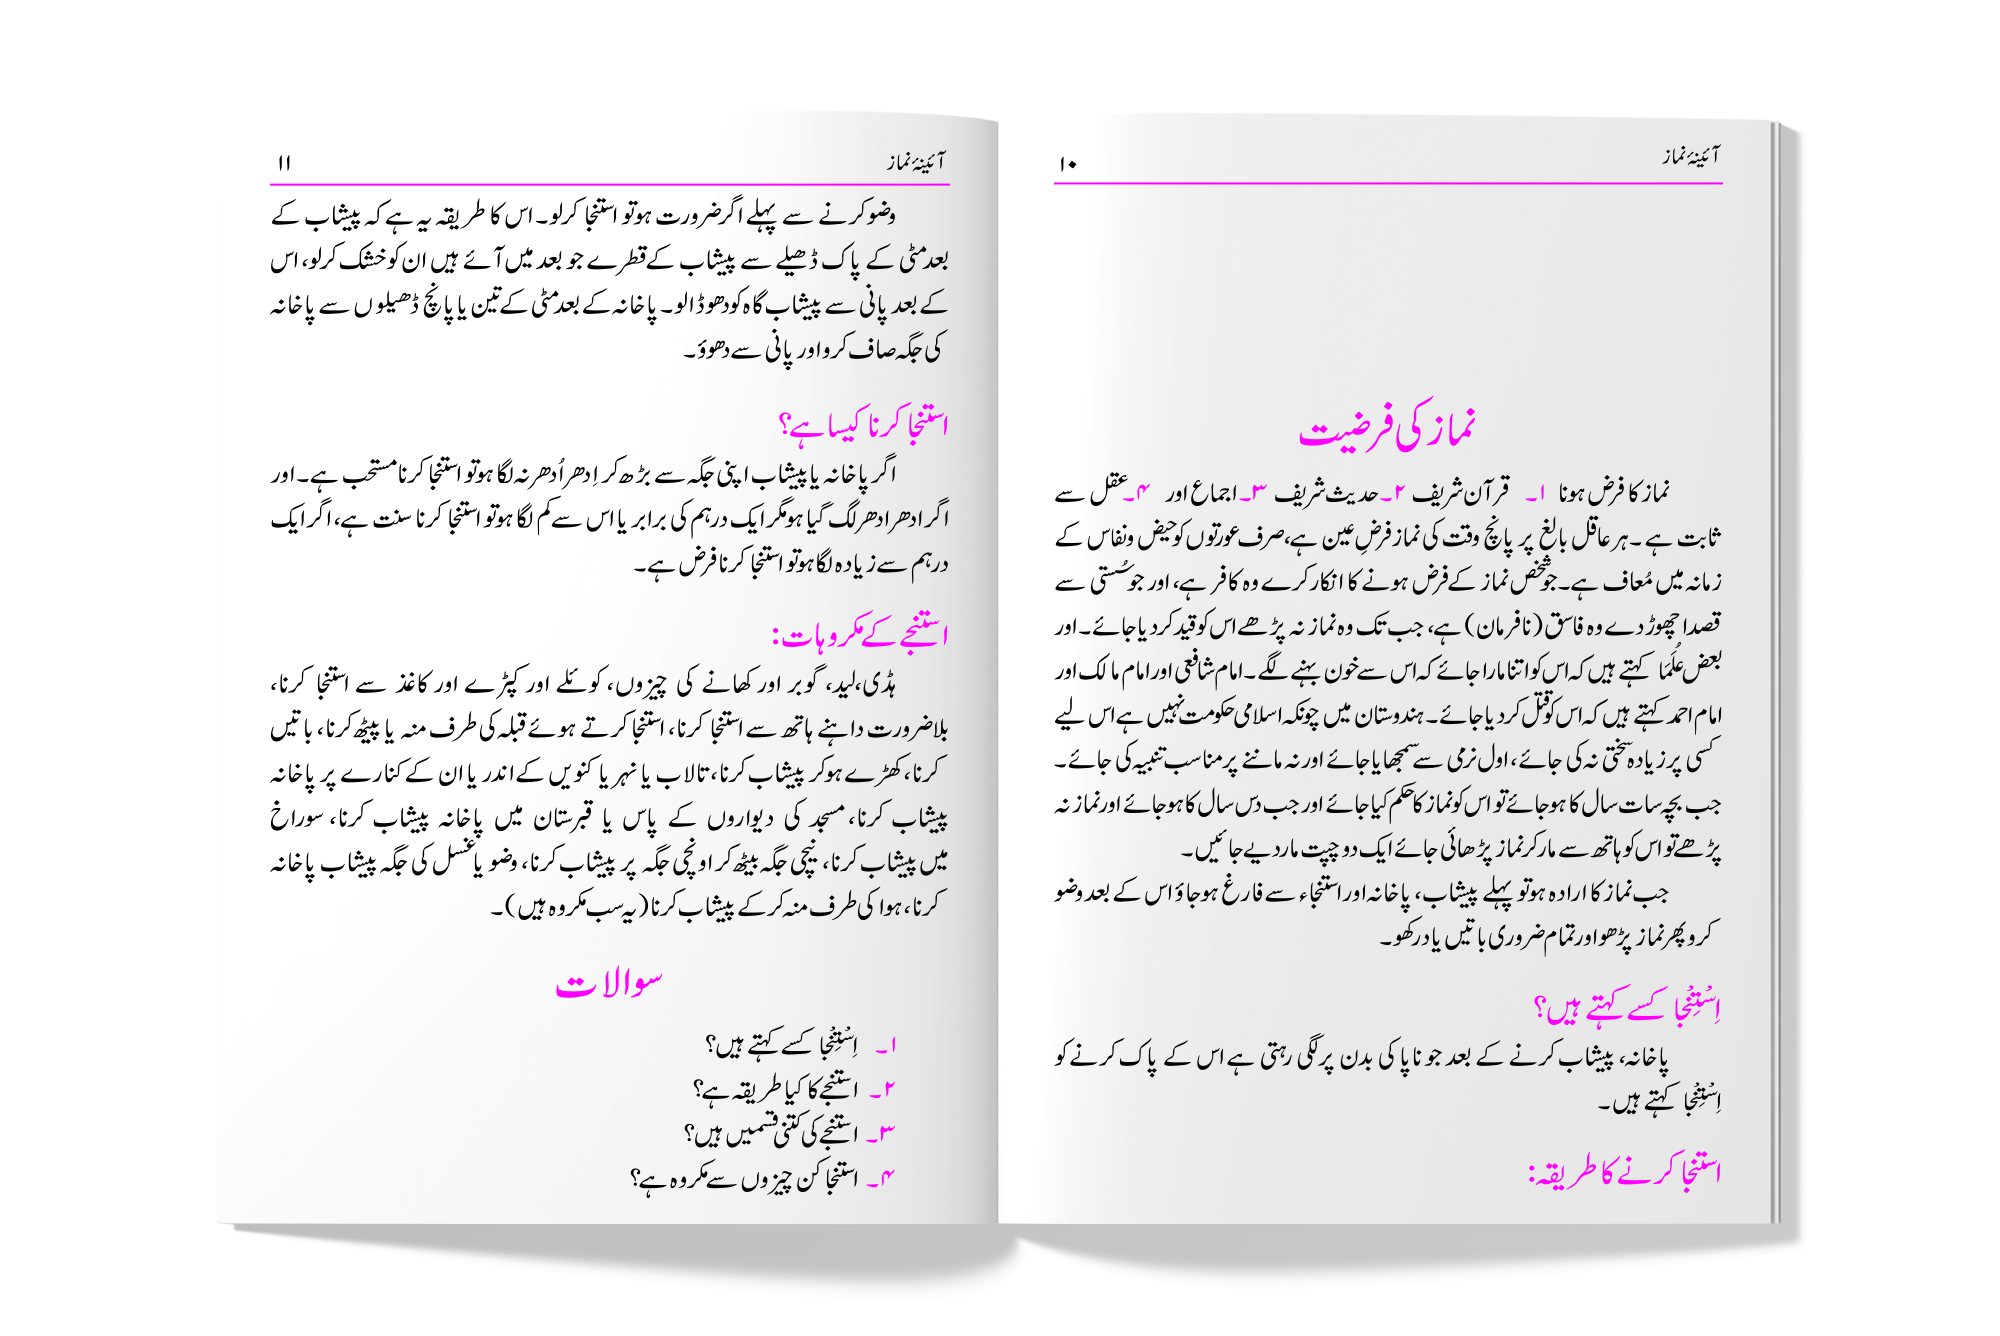 آئینۂ نماز
۱۰
نماز کی فرضیت
نماز کا فرض ہونا ۱۔ قرآن شریف ۲۔ حدیث شریف ۳۔ اجماع اور ۴۔ عقل سے
ثابت ہے۔ ہر عاقل بالغ پر پانچ وقت کی نماز فرضِ عین ہے، صرف عورتوں کو حیض ونفاس کے
زمانہ میں مُعاف ہے۔ جو شخص نماز کے فرض ہونے کا انکار کرے وہ کافر ہے، اور جو سُستی سے
قصدا چھوڑ دے وہ فاسق (نافرمان) ہے، جب تک وہ نماز نہ پڑھے اس کو قید کردیا جائے۔ اور
بعض عُلَمَا کہتے ہیں کہ اس کو اتنا مارا جائے کہ اس سے خون بہنے لگے۔ امام شافعی اور امام مالک اور
امام احمد کہتے ہیں کہ اس کو قتل کردیا جائے۔ ہندوستان میں چونکہ اسلامی حکومت نہیں ہے اس لیے
کسی پر زیادہ سختی نہ کی جائے، اول نرمی سے سمجھایا جائے اور نہ ماننے پر مناسب تنبیہ کی جائے۔
جب بچہ سات سال کا ہوجائے تو اس کو نماز کا حکم کیا جائے اور جب دس سال کا ہوجائے اور نماز نہ
پڑھے تو اس کو ہاتھ سے مار کر نماز پڑھائی جائے ایک دو چپت مار دیے جائیں۔
جب نماز کا ارادہ ہو تو پہلے پیشاب، پاخانہ اور استنجاء سے فارغ ہوجاؤ اس کے بعد وضو
کرو پھر نماز پڑھو اور تمام ضروری باتیں یاد رکھو۔
اِسْتِنْجا کسے کہتے ہیں؟
پاخانہ، پیشاب کرنے کے بعد جو ناپاکی بدن پر لگی رہتی ہے اس کے پاک کرنے کو
اِسْتِنْجا کہتے ہیں۔
استنجا کرنے کا طریقہ:
آئینۂ نماز
۱۱
وضو کرنے سے پہلے اگر ضرورت ہو تو استنجا کرلو۔ اس کا طریقہ یہ ہے کہ پیشاب کے
بعد مٹی کے پاک ڈھیلے سے پیشاب کے قطرے جو بعد میں آئے ہیں ان کو خشک کرلو، اس
کے بعد پانی سے پیشاب گاہ کو دھو ڈالو۔ پاخانہ کے بعد مٹی کے تین یا پانچ ڈھیلوں سے پاخانہ
کی جگہ صاف کرو اور پانی سے دھوؤ۔
استنجا کرنا کیسا ہے؟
اگر پاخانہ یا پیشاب اپنی جگہ سے بڑھ کر اِدھر اُدھر نہ لگا ہو تو استنجا کرنا مستحب ہے۔ اور
اگر ادھر ادھر لگ گیا ہو مگر ایک درہم کی برابر یا اس سے کم لگا ہو تو استنجا کرنا سنت ہے، اگر ایک
درہم سے زیادہ لگا ہو تو استنجا کرنا فرض ہے۔
استنجے کے مکروہات:
ہڈی، لید، گوبر اور کھانے کی چیزوں، کوئلے اور کپڑے اور کاغذ سے استنجا کرنا،
بلا ضرورت داہنے ہاتھ سے استنجا کرنا، استنجا کرتے ہوئے قبلہ کی طرف منہ یا پیٹھ کرنا، باتیں
کرنا، کھڑے ہوکر پیشاب کرنا، تالاب یا نہر یا کنویں کے اندر یا ان کے کنارے پر پاخانہ
پیشاب کرنا، مسجد کی دیواروں کے پاس یا قبرستان میں پاخانہ پیشاب کرنا، سوراخ
میں پیشاب کرنا، نیچی جگہ بیٹھ کر اونچی جگہ پر پیشاب کرنا، وضو یا غسل کی جگہ پیشاب پاخانہ
کرنا، ہوا کی طرف منہ کرکے پیشاب کرنا (یہ سب مکروہ ہیں)۔
سوالات
۱۔ اِسْتِنْجا کسے کہتے ہیں؟
۲۔ استنجے کا کیا طریقہ ہے؟
۳۔ استنجے کی کتنی قسمیں ہیں؟
۴۔ استنجا کن چیزوں سے مکروہ ہے؟